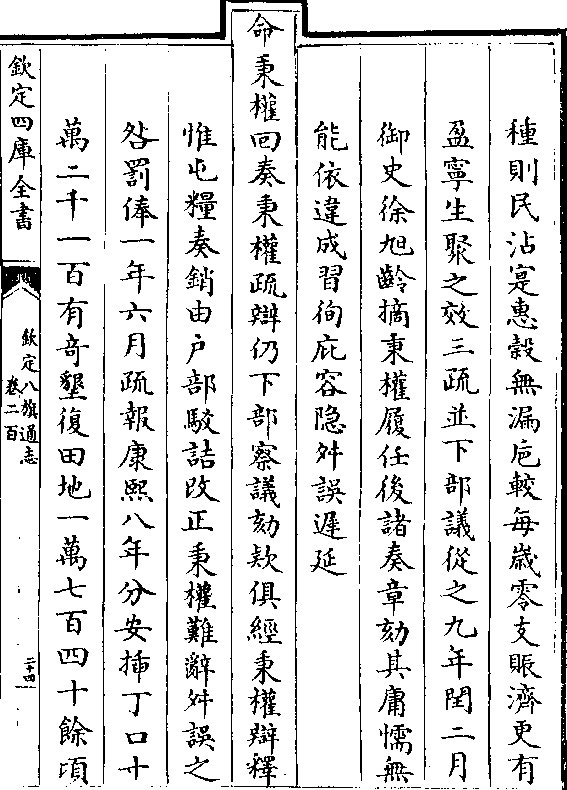 種則民沾寔惠穀無漏卮較每歲零支賑濟更有
盈寧生聚之效三疏並下部議從之九年閏二月
御史徐旭齡摘秉權履任後諸奏章劾其庸懦無
能依違成習徇庇容隐舛誤遲延
命秉權回奏秉權疏辯仍下部察議劾欵俱經秉權辯釋
惟屯糧奏銷由户部駁詰改正秉權難辭舛誤之
咎罰俸一年六月疏報康熙八年分安揷丁口十
萬二千一百有竒墾復田地一萬七百四十餘頃
欽定四庫全書
欽定八旗通志
卷二百
二十四